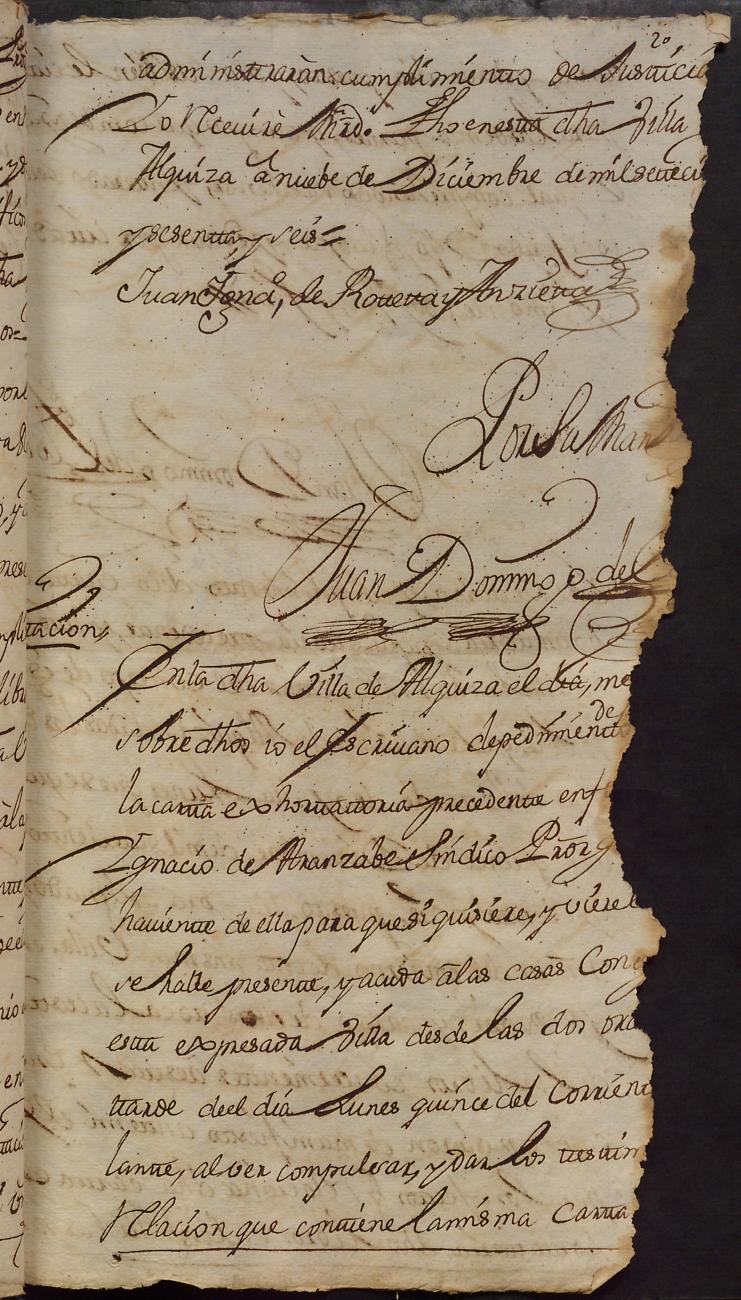 20
administraràn cumplimiento de Justicia
Lo Receuirè Mrd. Fho en esta dha Villa
Alquiza à nuebe de Diciembre de mil seteci
y sesenta, y seis=
Juan Fernd, de Roteta y Anzieta
Por su Man
Juan Domingo del
tacion,
En la dha Villa de Alquiza el dia, me
sobre dhos io el Escriuano de pedimento de
la carta exhortatoria precedente en
Ygnacio de Aranzabe Sindico Pror g
hauiente de ella para que si quisiere, y viere
se halle presente, y acuda à las casas Conc
esta expresada Villa desde las dos ora
tarde de el dia Lunes quince del Corrient
lante, al ver compulsar, y dar los testim
Relacion que contiene la misma Carta